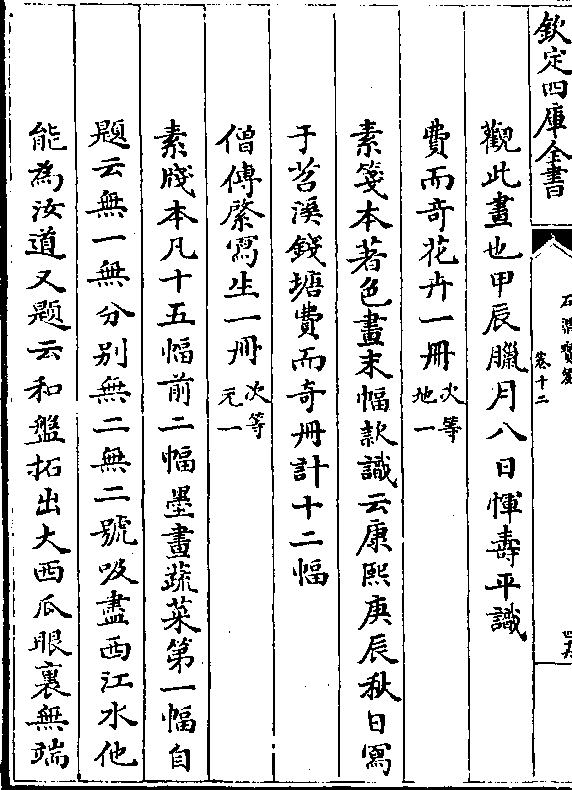 欽定四庫全書
石渠寳笈
卷十二
觀此畫也甲辰臘月八日惲壽平識
費而奇花卉一冊次等地一
素箋本著色畫末幅款識云康熙庚辰秋日寫
于苕溪錢塘費而奇冊計十二幅
僧傳綮寫生一冊次等元一
素牋本凡十五幅前二幅墨畫蔬菜第一幅自
題云無一無分别無二無二號吸盡西江水他
能為汝道又題云和盤拓出大西瓜眼裏無端